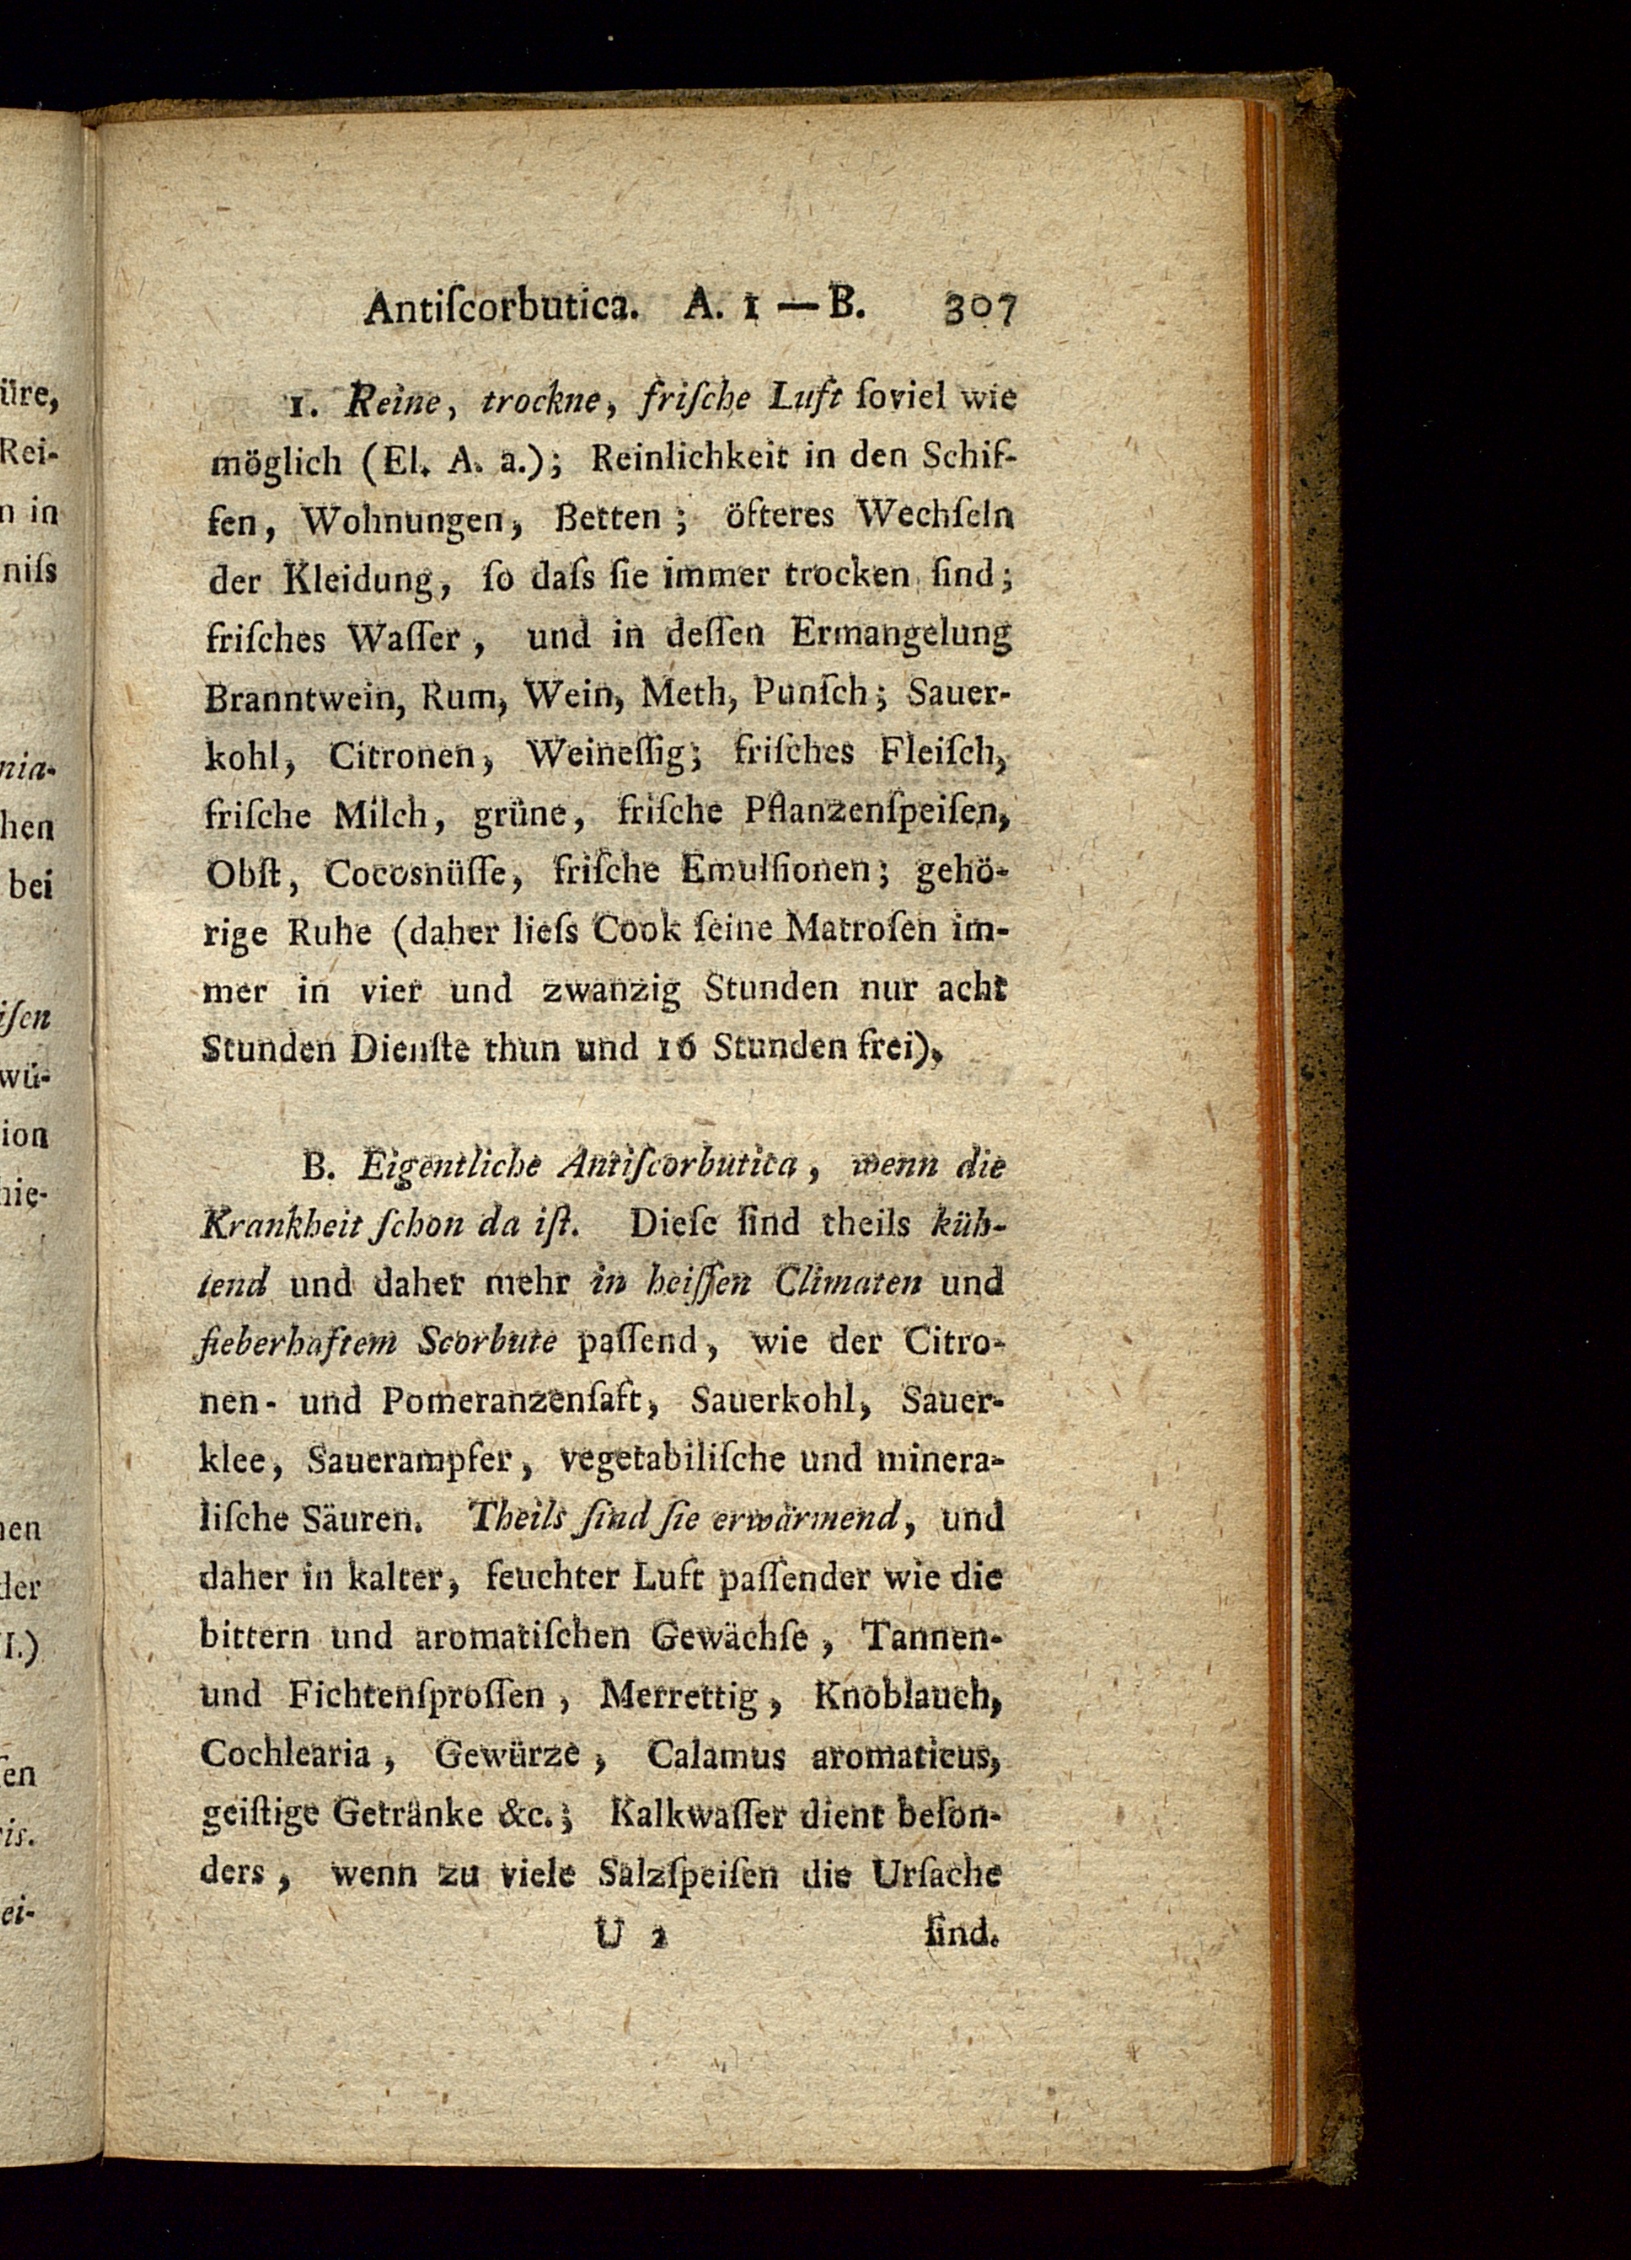 Antiſcorbutica. A. 1 — B. 307
1. Reine, trockne, friſche Luft ſoviel wie
möglich (El. A. a.); Reinlichkeit in den Schif-
fen, Wohnungen, Betten; öfteres Wechſeln
der Kleidung, ſo daſs ſie immer trocken ſind;
friſches Waſſer, und in deſſen Ermangelung
Branntwein, Rum, Wein, Meth, Punſch; Sauer-
kohl, Citronen, Weineſſig; friſches Fleiſch,
friſche Milch, grüne, friſche Pflanzenſpeiſen,
Obſt, Cocosnüſſe, friſche Emulſionen; gehö-
rige Ruhe (daher lieſs Cook ſeine Matroſen im-
mer in vier und zwanzig Stunden nur acht
Stunden Dienſte thun und 16 Stunden frei),
B. Eigentliche Antiſcorbutica, wenn die
Krankheit ſchon da iſt. Dieſe ſind theils küh-
lend und daher mehr in heiſſen Climaten und
fieberhaftem Scorbute paſſend, wie der Citro-
nen- und Pomeranzenſaft, Sauerkohl, Sauer-
klee, Sauerampfer, vegetabiliſche und minera-
liſche Säuren. Theils ſind ſie erwärmend, und
daher in kalter, feuchter Luft paſſender wie die
bittern und aromatiſchen Gewächſe, Tannen-
und Fichtenſproſſen, Merrettig, Knoblauch,
Cochlearia, Gewürze, Calamus aromaticus,
geiſtige Getränke &c.; Kalkwaſſer dient beſon-
ders, wenn zu viele Salzſpeiſen die Urſache
U 2 ſind.
üre,
Rei-
n in
niſs
nia-
hen
bei
iſen
wü-
ion
hie-
en
der
I.)
ſen
is.
ei-